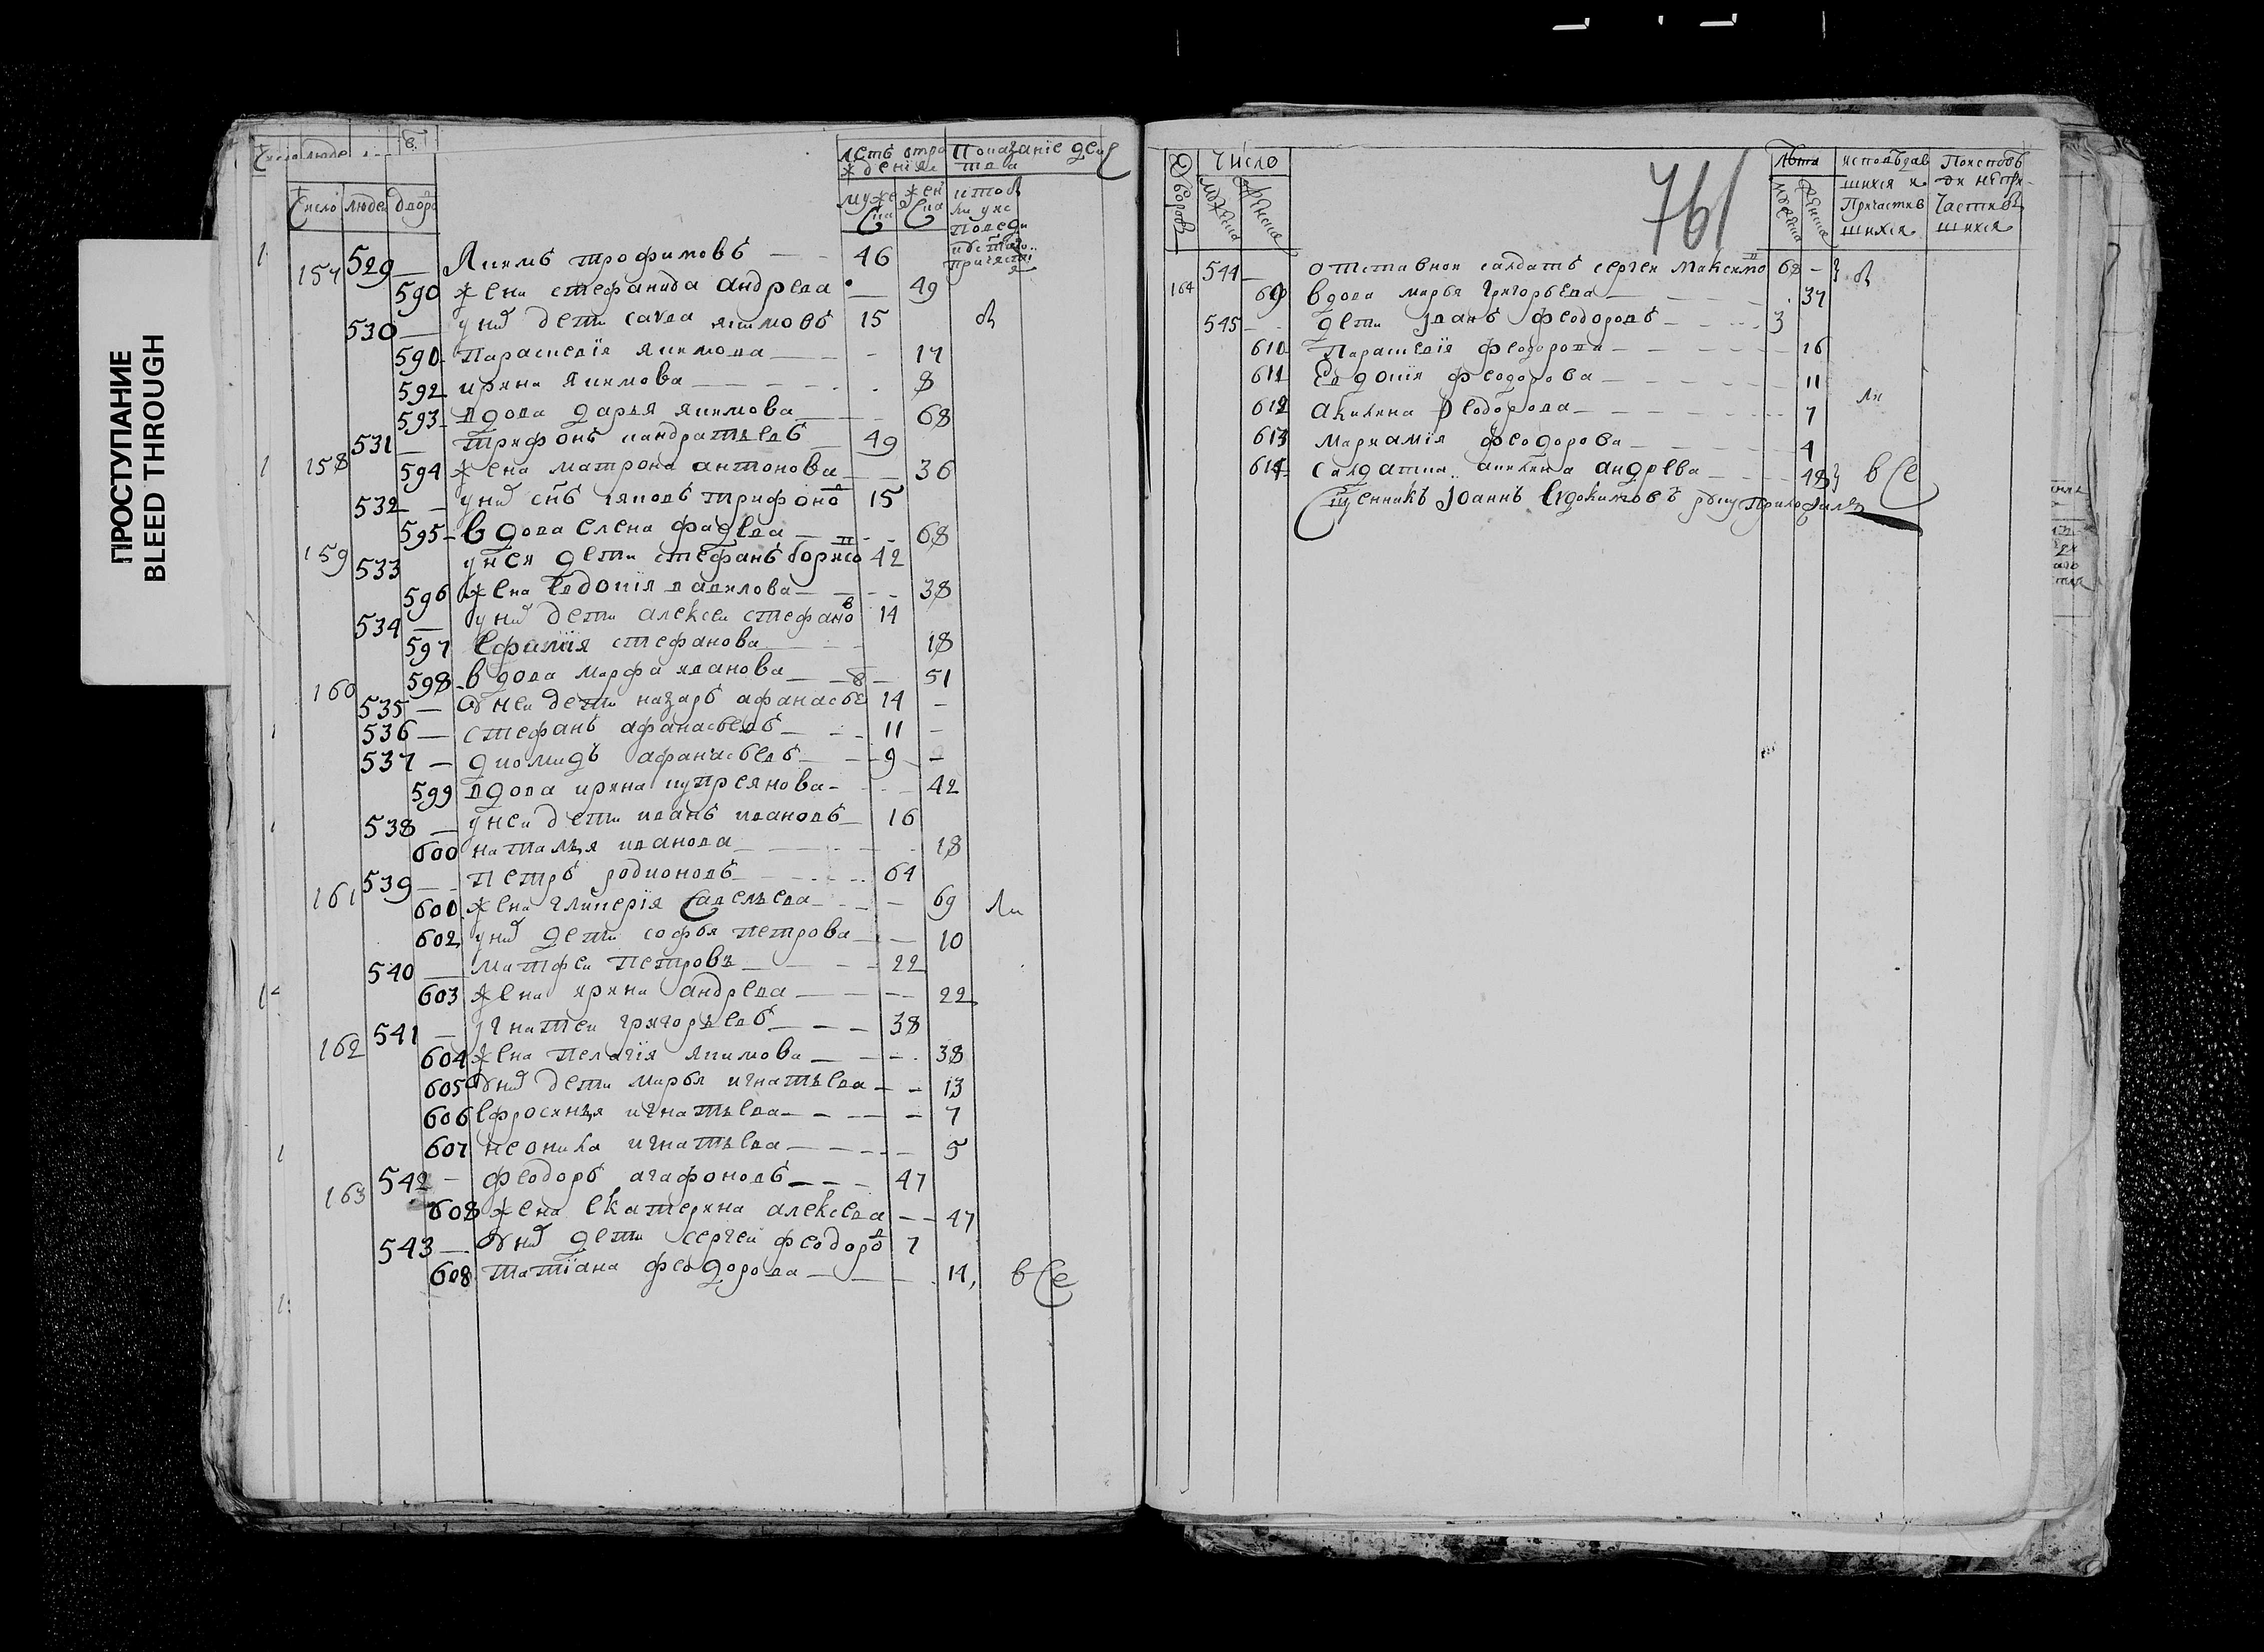 ПРОСТУПАНИЕ
BLEED THROUGH
Число люде
в
летъ отро
жденія
Показаніе дей
ства
Число
люде
дворо
муже
ска
жен
ска
157 529 Якимъ трофимовъ 46
590 жена стефанида андрева 49
530 у них дети савва якимовъ 15
590 Парасковія якимова 17
592 ирина Якимова 8
593 вдова дарья якимова 68
531 трифонъ кандратьевъ 49
158 594 жена матрона антонова 36
532 у них снъ яковъ трифоно в 15
595 вдова елена фадева 68
159 533 у нея дети стефанъ борисо в 42
596 жена евдокія данилова 38
534 у них дети алексеи стефано в 14
597 ефимія стефанова 18
598 вдова марфа иванова 51
160 535 у неи дети назаръ афанасье в 14
536 стефанъ афанасьевъ 11
537 диомидъ афанасьевъ 9
599 вдова ирина купреянова 42
538 у неи дети иванъ ивановъ 16
600 наталья иванова 18
161 539 петръ родионовъ 64
600 жена гликерія савельева 69 ли
602 у них дети софья петрова 10
540 матфеи петровъ 22
603 жена ирина андрева 22
162 541 игнатеи григорьевъ 38
604 жена пелагія якимова 38
605 у них дети марья игнатьева 13
606 ефросинья игнатьева 7
607 неонила игнатьева 5
163 542 феодоръ агафоновъ 47
608 жена екатерина алексева 47
543 у них дети сергеи феодоро в 7
608 татіана феодорова 14 все
761
Дворовъ
Число
мужеска
женска
лѣта
мужеска
женска
исповѣдав
шихся и
Причастив
шихся
Поисповѣ
ди непри
частив
шихся
164 544 отставнои салдатъ сергеи Максимо в 68
609 вдова марья григорьева 37
545 дети Іванъ феодоровъ 3
610 Парасковія феодорова 16
611 Евдокія феодорова 11
612 акилина феодорова 7 ли
613 мариамія феодорова 4
614 салдатка акилина андрева 48 все
Сщенникъ Іоаннъ Евдокимовъ руку Приложилъ